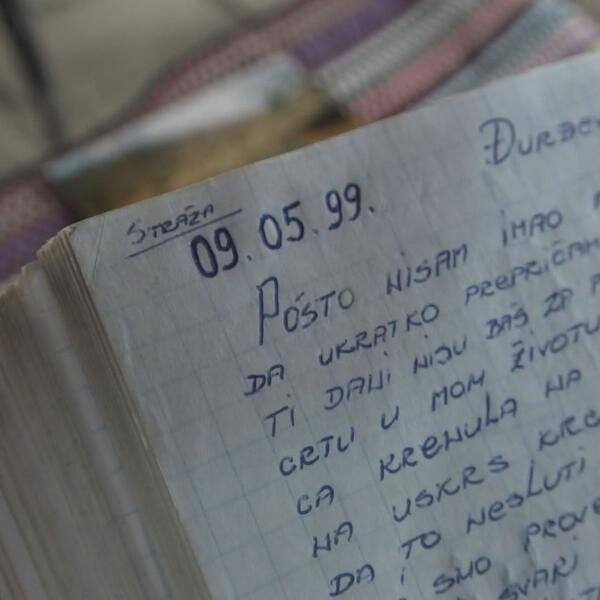 STRAŽA
09.05.99.
POŠTO NISAM IMAO
DA UKRATKO PREPRIČAM
TI DANI NISU BAŠ ZA
CRTU U MOM ŽIVOTU
CA KRENULA NA
NA USKRS
DA TO NESLUTI
DA I SMO
SVAKI